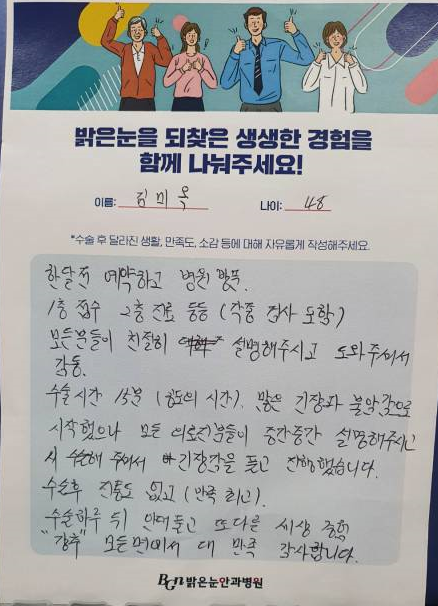 밝은눈을 되찾은 생생한 경험을
함께 나눠주세요!
이름: 김미옥 나이: 48
*수술 후 달라진 생활, 만족도, 소감 등에 대해 자유롭게 작성해주세요.
한달전 예약하고 병원 방문.
1층 접수 2층 진료 등등 (각종 검사 포함)
모든분들이 친절히 설명해주시고 도와주셔서
감동.
수술시간 15분 (의 시간). 많은 긴장과 불안감으로
시작했으나 모든 의료진분들이 중간중간 설명해주시고
시 해 주셔서 긴장감을 풀고 진행했습니다.
수술후 진통도 없고 (만족 최고).
수술하루 뒤 안대풀고 또다른 세상 경험
"강추" 모든면에서 대 만족 감사합니다.
BGN 밝은눈안과병원